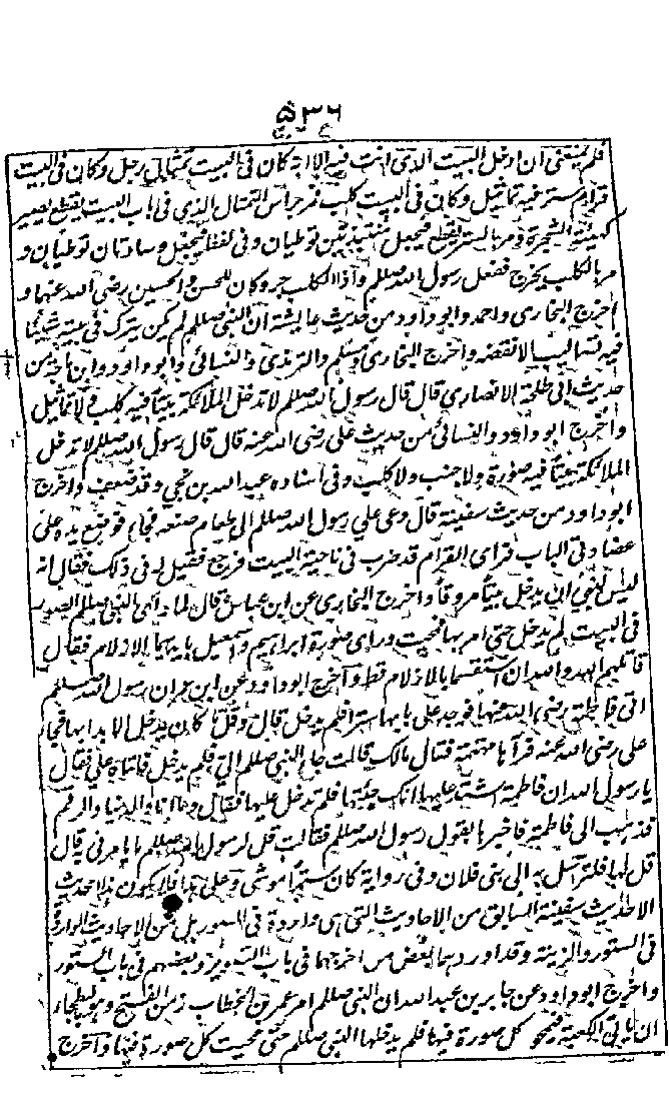 ۵۳۶
فلم یمنعنی ان ادخل البیت الذی انت فیه الا انه کان فی البیت تمثال رجل وکان فی البیت
قرام ستر فیه تماثیل وکان فی البیت کلب فمر براس التمثال الذی فی باب البیت یقطع یصیر
کهیئة الشجرة ومر بالستر یقطع فیجعل منتبذتین توطیان وفی لفظ فیجعل وسادتان توطیان و
مر بالکلب یخرج ففعل رسول الله صللم واذا الکلب جرو کان للحسن والحسین رضی الله عنهما و
اخرج البخاری واحمد وابو داود من حدیث عایشة ان النبی صللم لم یکن یترک فی بیته شیئا
فیه تصالیب الا نقضه واخرج البخاری ومسلم والترمذی والنسائی وابو داود وابن ماجه من
حدیث ابی طلحة الانصاری قال قال رسول الله صللم لا تدخل الملائکة بیتا فیه کلب ولا تماثیل
واخرج ابو داود والنسائی من حدیث علی رضی الله عنه قال قال رسول الله صللم لا تدخل
الملائکة بیتا فیه صورة ولا جنب ولا کلب وفی اسناده عبد الله بن نجی وقد ضعف واخرج
ابو داود من حدیث سفینة قال دعی علی رسول الله صللم الی طعام صنعه فجاء فوضع یده علی
عضادتی الباب فرای القرام قد ضرب فی ناحیة البیت فرجع فقیل له فی ذلک فقال انه
لیس لنبی ان یدخل بیتا مزوقا واخرج البخاری عن ابن عباس قال لما رای النبی صللم الصور
فی البیت لم یدخل حتی امر بها فمحیت ورای صورة ابراهیم واسمعیل بایدیهما الازلام فقال
قاتلهم الله والله ان استقسما بالازلام قط واخرج ابو داود عن ابن عمر ان رسول الله صللم
اتی فاطمة رضی الله عنها فوجد علی بابها سترا فلم یدخل قال وقل ما کان یدخل الا بدا بها فجاء
علی رضی الله عنه فرآها مهتمة فقال مالک قالت جاء النبی صللم الی فلم یدخل فاتاه علی فقال
یا رسول الله ان فاطمة اشتد علیها انک جئتها فلم تدخل علیها فقال وما انا والدنیا والرقم
فذهب الی فاطمة فاخبرها بقول رسول الله صللم فقالت قل لرسول الله صللم ما یامرنی قال
قل لها فلترسل به الی بنی فلان وفی روایة کان سترا موشی وعلی هذا فلا یکون هذا حدیث
الا حدیث سفینة السابق من الاحادیث التی هی واردة فی الصور بل من الاحادیث الواردة
فی الستور والزینة وقد اوردها بعض من اخرجها فی باب التصویر وبعضهم فی باب الستور
واخرج ابو داود عن جابر بن عبد الله ان النبی صللم امر عمر بن الخطاب زمن الفتح وهو بالبطحاء
ان یاتی الکعبة فیمحو کل صورة فیها فلم یدخلها النبی صللم حتی محیت کل صورة فیها واخرج